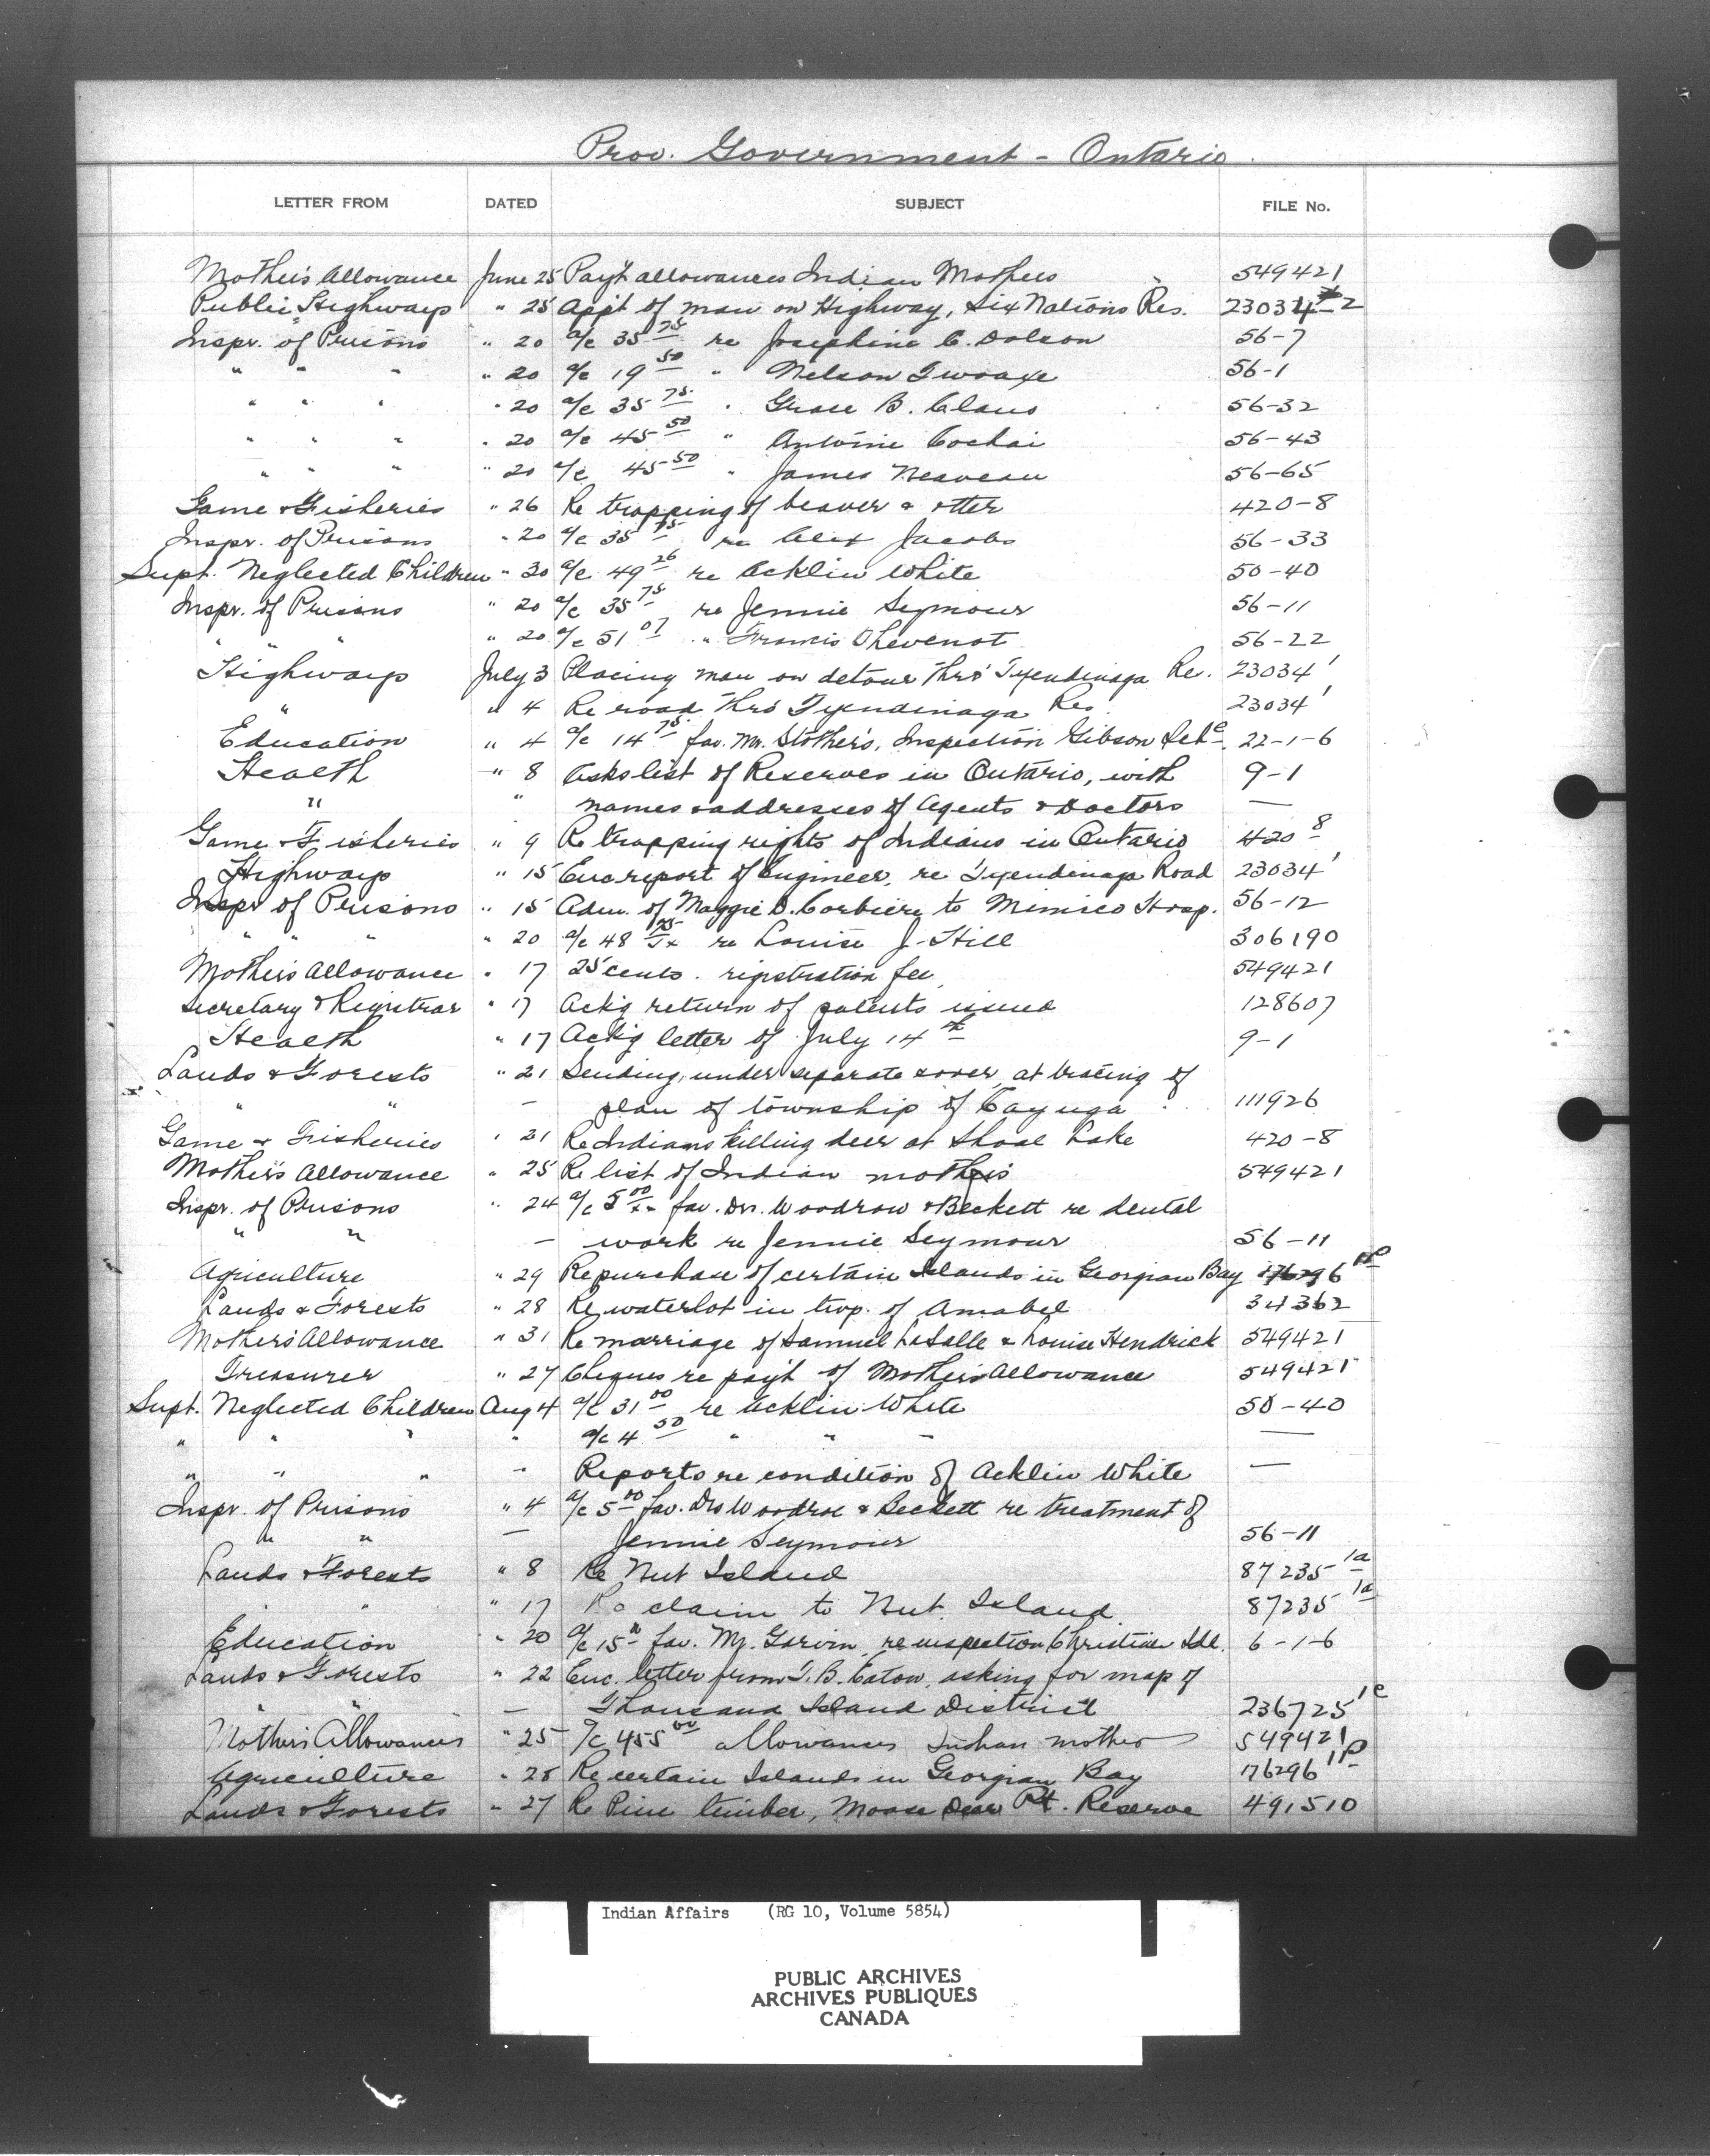 Prov. Government - Ontario.
LETTER FROM DATED SUBJECT FILE No.
Mother's Allowance June 25 Pay't allowances Indian Mothers 549421
Public Highways " 25 App't of man on Highway, Six Nations Res. 23034-2
Inspr. of Prisons " 20 a/c 35 75 re Josephine C. Dolson 56-7
" " " " 20 a/c 19 50 " Nelson Twoaxe 56-1
" " " " 20 a/c 35 75 " Grace B. Claus 56-32
" " " " 20 a/c 45 50 " Antoine Cochai 56-43
" " " " 20 a/c 45 50 " James Neaveau 56-65
Game & Fisheries " 26 Re trapping of beaver & otter 420-8
Inspr. of Prisons " 20 a/c 35 75 re Alex Jacobs 56-33
Supt. Neglected Children " 30 a/c 49 26 re Acklin White 50-40
Inspr. of Prisons " 20 a/c 35 75 re Jennie Seymour 56-11
" " " " 20 a/c 51 07 " Francis Thevenot 56-22
Highways July 3 Placing man on detour thro' Tyendinaga Re. 23034 1
" " 4 Re road thro' Tyendinaga Res. 23034 1
Education " 4 a/c 14 75 fav. Mr. Stothers, Inspection Gibson Sch. 22-1-6
Health " 8 Asks list of Reserves in Ontario, with 9-1
" " names & addresses of Agents & Doctors —
Game & Fisheries " 9 Re trapping rights of Indians in Ontario 420 8
Highways " 15 Enc report of Engineer, re Tyendinaga Road 23034 1
Inspr of Prisons " 15 Adm. of Maggie D. Corbiere to Mimico Hosp. 56-12
" " " " 20 a/c 48 75 re Louise J. Hill 306190
Mother's Allowance " 17 25 cents. registration fee 549421
Secretary & Registrar " 17 Ack'g return of patents issued 128607
Health " 17 Ack'g letter of July 14th 9-1
Lands & Forests " 21 Sending, under separate cover, at tracing of
" " — plan of township of Cayuga 111926
Game & Fisheries " 21 Re Indians killing deer at Shoal Lake 420-8
Mother's Allowance " 25 Re list of Indian mothers 549421
Inspr. of Prisons " 24 a/c 5 00 fav. Drs. Woodrow & Beckett re dental
" " — work re Jennie Seymour 56-11
Agriculture " 29 Re purchase of certain Islands in Georgian Bay 176296 1P
Lands & Forests " 28 Re waterlot in twp. of Amabel 34362
Mothers Allowance " 31 Re marriage of Samuel LaSalle & Louise Hendrick 549421
Treasurer " 27 Cheques re pay't of Mother's Allowance 549421
Supt. Neglected Children Aug 4 a/c 31 00 re Acklin White 50-40
" " " " a/c 4 50 " " " —
" " " " Reports re condition of Acklin White —
Inspr. of Prisons " 4 a/c 5 00 fav. Drs Woodroe & Beckett re treatment of
" " — Jennie Seymour 56-11
Lands & Forests " 8 Re Nut Island 87235 1a
" " " 17 Re claim to Nut Island. 87235 1a
Education " 20 a/c 15 fav. Mr. Garvin, re inspection Christian Isl. 6-1-6
Lands & Forests " 22 Enc. letter from T. B. Caton, asking for map of
— Thousand Island District 236725 1c
Mother's Allowances " 25 a/c 455 00 allowances Indian mothers 549421
Agriculture " 28 Re certain Islands in Georgian Bay 176296 1P
Lands & Forests " 27 Re Pine timber, Moose Deer Pt. Reserve 491510
Indian Affairs (RG 10, Volume 5854)
PUBLIC ARCHIVES
ARCHIVES PUBLIQUES
CANADA